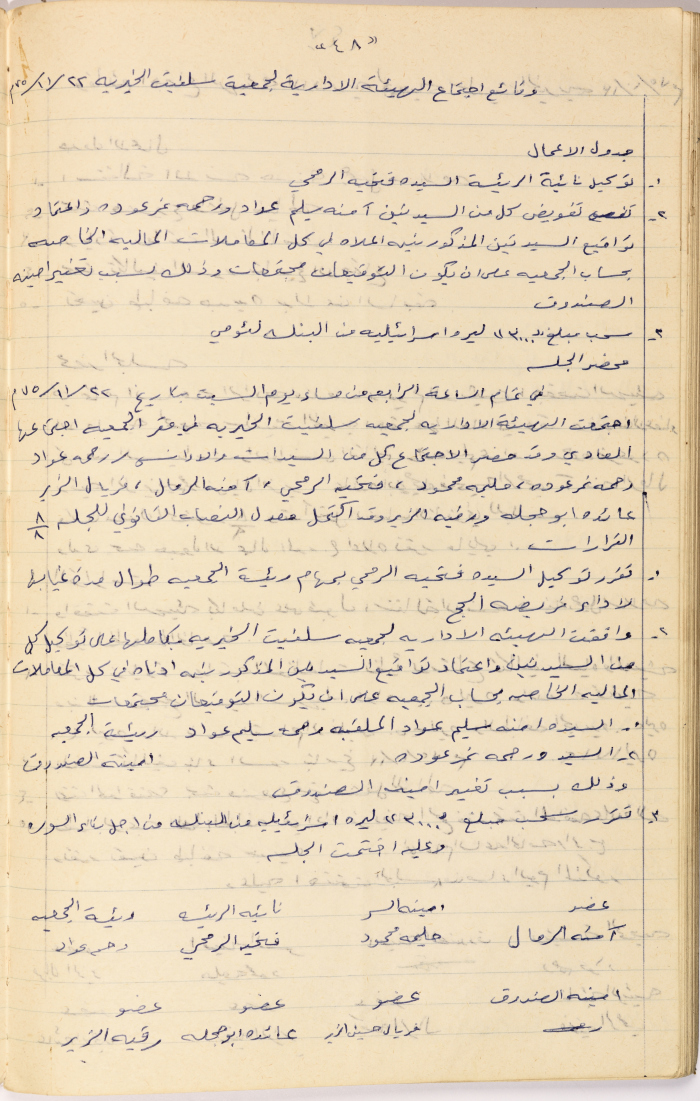 «٤٨»
وقائع اجتماع الهيئة الادارية لجمعية سلفيت الخيرية ٢٢/١١/٧٥م
جدول الاعمال
١- توكيل نائبة الرئيسة السيده فتحيه الرمحي
٢- تفويض كل من السيدتين آمنه سليم عواد ورحمه نمر عوده واعتماد
تواقيع السيدتين المذكورتين اعلاه في كل المعاملات الماليه الخاصه
بحساب الجمعيه على ان يكون التوقيعان مجتمعات وذلك بسبب تغير امينه
الصندوق
٣- سحب مبلغ "٣٠٠٠" ليره اسرائيليه من البنك لئومي
محضر الجلسه
في تمام الساعة الرابعه من مساء يوم السبت بتاريخ ٢٢/١١/٧٥م
اجتمعت الهيئة الاداريه لجمعيه سلفيت الخيريه في مقر الجمعيه اجتماعها
العادي وقد حضر الاجتماع كل من السيدات والاوانس رحمه عواد
رحمه نمر عوده، حليمه محمود، فتحيه الرمحي، آمنه الرمال، فريال الزير
عائده ابو حجله ورقيه الزير وقد اكتمل معدل النصاب القانوني للجلسه ٨/٨
القرارات
١- تقرر توكيل السيده فتحيه الرمحي بمهام رئيسة الجمعيه طوال مدة غيابها
لاداء فريضه الحج
٢- وافقت الهيئه الاداريه لجمعيه سلفيت الخيريه بكاملها على توكيل كل
من السيدتين واعتماد تواقيع السيدتين المذكورتين ادناه في كل المعاملات
الماليه الخاصه بحساب الجمعيه على ان تكون التوقيعان مجتمعات
١- السيده امنه سليم عواد الملقبه رحمه سليم عواد رئيسة الجمعيه
٢- السيده رحمه نمر عوده امينة الصندوق
وذلك بسبب تغير امينه الصندوق
٣- تقرر سحب مبلغ "٣٠٠٠" ليره اسرائيليه من البنك من اجل بناء السور
وعليه اختتمت الجلسه
عضو امينه السر نائبه الرئيسه رئيسة الجمعيه
آمنه الرمال حليمه محمود فتحيه الرمحي رحمه عواد
امينه الصندوق عضو عضو عضو
فريال حسين الزير عائده ابو حجله رقيه الزير